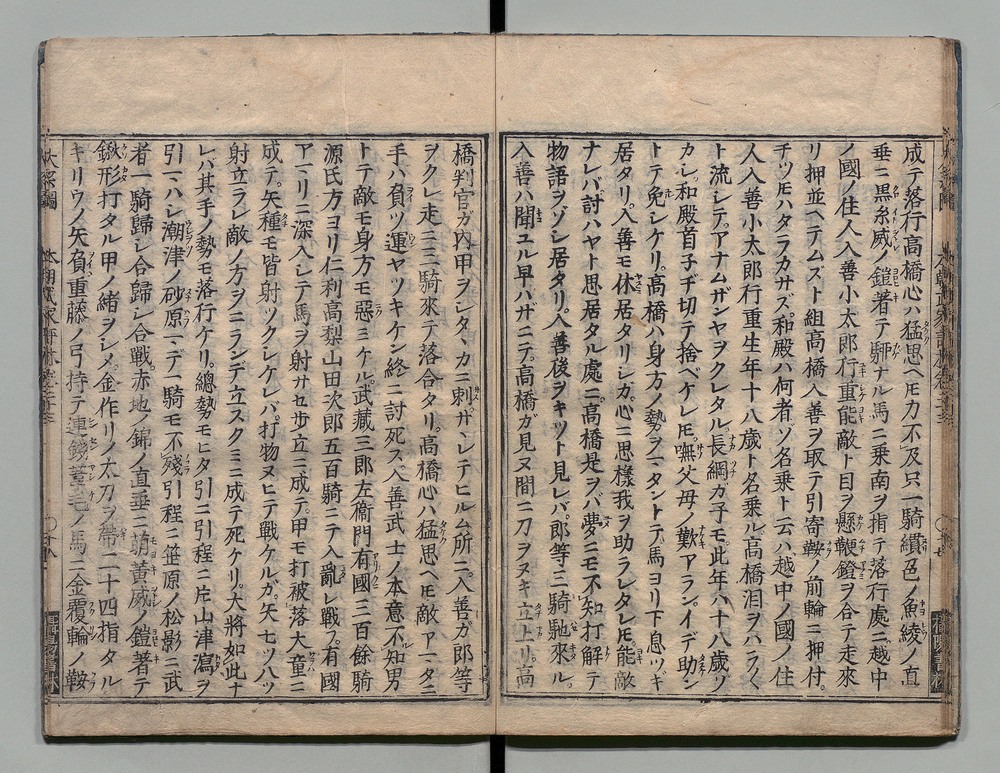 成テ落行高橋心ハ猛思ヘモ力不及只一騎纐邑ノ魚綾ノ直
垂ニ黒糸威ノ鎧著テ騂ナル馬ニ乗南ヲ指テ落行處ニ越中
ノ國ノ住人入善小太郎行重能敵ト目ヲ懸鞭鐙ヲ合テ走來
リ押並ヘテムズト組高橋入善ヲ取テ引寄鞍ノ前輪ニ押付
チツモハタラカサズ和殿ハ何者ソ名乗ト云ハ越中ノ國ノ住
人入善小太郎行重生年十八歳ト名乗ル高橋泪ヲハラく
ト流シテアナムザンヤヲクレタル長綱ガ子モ此年ハ十八歳ゾ
カレ和殿首子ヂ切テ捨ベケレモ嘸父母ノ歎アランイデ助ン
トテ免シケリ高橋ハ身方ノ勢ヲマタントテ馬ヨリ下息ツギ
居タリ入善モ休居タリシカ心ニ思樣我ヲ助ラレタレモ能敵
ナレバ討ハヤト思居タル處ニ高橋是ヲバ夢ニモ不知打解テ
物語ヲゾシ居タリ入善後ヲキット見レバ郎等三騎馳來ル
入善ハ聞ユル早ハザニテ高橋ガ見ヌ間ニ刀ヲヌキ立上リ高
橋判官ガ内甲ヲシタヽカニ刺サレテヒルム所ニ入善ガ郎等
ヲクレ走ニ三騎來テ落合タリ高橋心ハ猛思ヘモ敵アマタニ
手ハ負ツ運ヤツキケン終ニ討死ス入善武士ノ本意不知男
トテ敵モ身方モ惡ミケル武藏三郎左衞門有國三百餘騎
源氏方ヨリ仁利高梨山田次郎五百騎ニテ入亂レ戰フ有國
アマリニ深入シテ馬ヲ射サセ歩立ニ成テ甲モ打被落大童ニ
成テ矢種モ皆射ツクシケレバ打物ヌヒテ戰ケルガ矢七ツ八ツ
射立ラレ敵ノ方ヲニランデ立スクミニ成テ死ケリ大將如此ナ
レバ其手ノ勢モ落行ケリ總勢モヒタ引ニ引程ニ片山津瀉ヲ
引マハシ潮津ノ砂原マデ一騎モ不殘引程ニ笹原ノ松影ニ武
者一騎歸シ合歸シ合戰赤地ノ錦ノ直垂ニ萌黃威ノ鎧著テ
鍬形打タル甲ノ緒ヲシメ金作リノ太刀ヲ帶二十四指タル
キリウノ矢負重藤ノ弓持テ連錢葦毛ノ馬ニ金覆輪ノ鞍